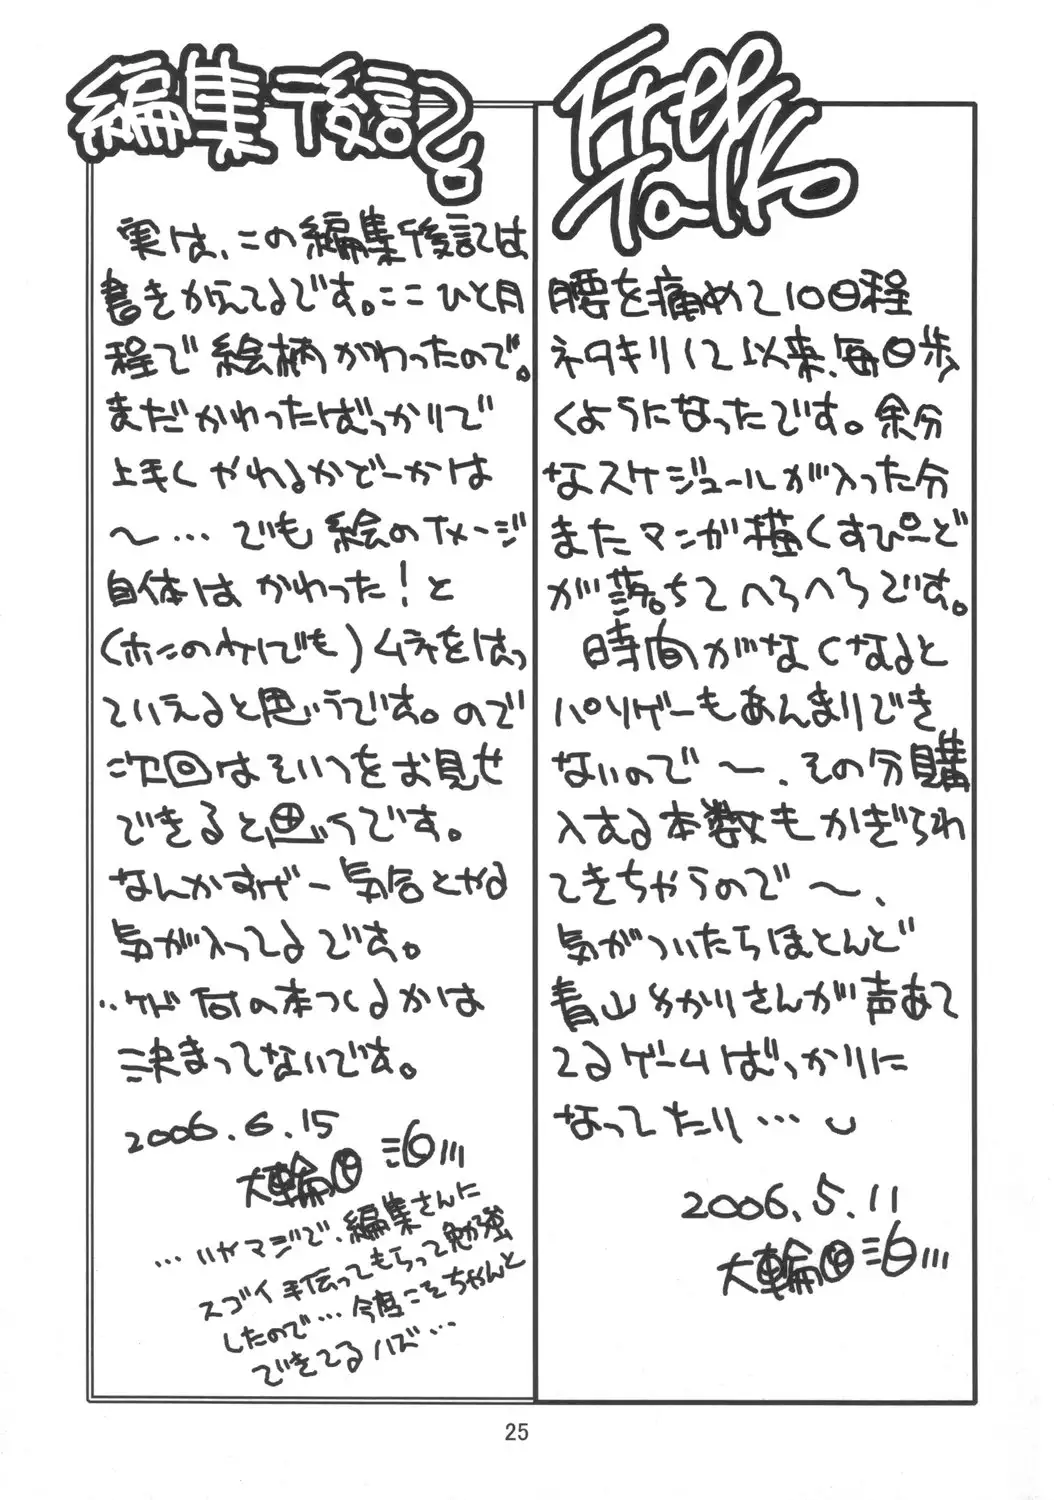 編集後記。
実は、この編集後記は
書きかえてるです。ここひと月
程で絵柄がかわったので。
まだかわったばっかりで
上手くやれるかどーかは
～…でも絵のイメージ
自体はかわった!と
(ホンのケイでも)ムネをはっ
ていえると思うです。ので
次回はそいつをお見せ
できると思うです。
なんかすげー気合とやる
気が入ってるです。
‥ケド何の本つくるかは
決まってないです。
2006.6.15
…いやマジで、編集さんに
スゴイ手伝ってもらって勉強
したので…今度こそちゃんと
できてるハズ…
Free
Talk。
腰を痛めて10日程
ネタキリして以来、毎日歩
くようになったです。余分
なスケジュールが入った分
またマンガ描くすぴーど
が落ちてへろへろです。
時間がなくなると
パソゲーもあんまりでき
ないので～、その分購
入する本数もかぎられ
てきちゃうので～、
気がついたらほとんど
青山ゆかりさんが声あて
てるゲームばっかりに
なってたり…
2006.5.11
25